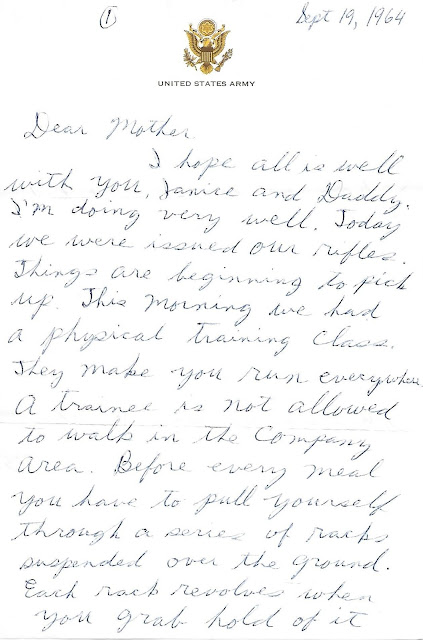 ① Sept 19, 1964
UNITED STATES ARMY
Dear Mother.
I hope all is well
with you, Janice and Daddy.
I'm doing very well. Today
we were issued our rifles.
Things are beginning to pick
up. This morning we had
a physical training class.
They make you run everywhere.
A trainee is not allowed
to walk in the Company
area. Before every meal
you have to pull yourself
through a series of racks
suspended over the ground.
Each rack revolves when
you grab hold of it